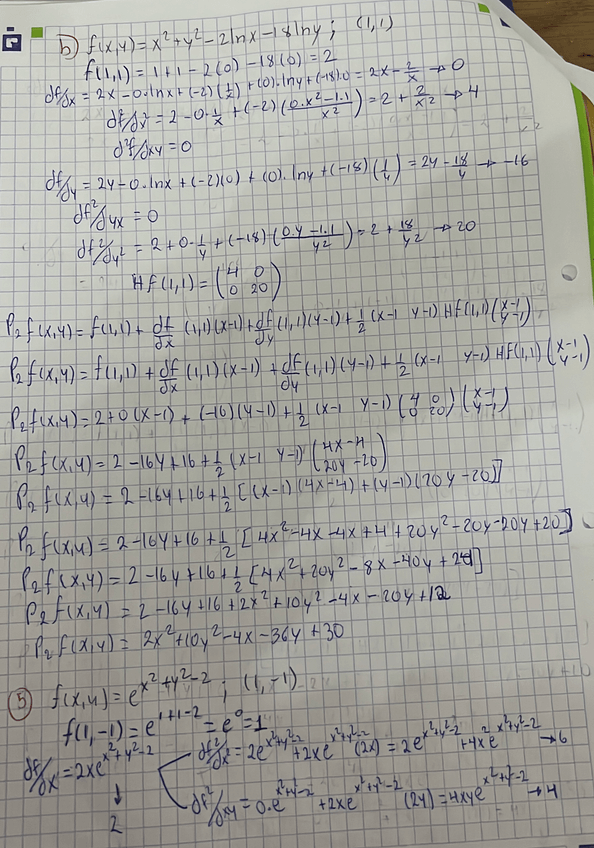 b) f(x,y) = x² + y² - 2lnx - 18lny ; (1,1)
f(1,1) = 1+1 - 2(0) - 18(0) = 2
df/dx = 2x - 0·lnx + (-2)(1/x) + (0)·lny + (-18)·0 = 2x - 2/x → 0
df²/dx² = 2 - 0·1/x + (-2)((0·x² - 1·1)/x²) = 2 + 2/x² → 4
d²f/dxy = 0
df/y = 2y - 0·lnx + (-2)(0) + (0)·lny + (-18)(1/y) = 2y - 18/y → -16
df²/dyx = 0
df²/dy² = 2 + 0·1/y + (-18)((0·y - 1·1)/y²) = 2 + 18/y² → 20
Hf(1,1) = (4 0
0 20)
P₂f(x,y) = f(1,1) + df/dx (1,1)(x-1) + df/dy (1,1)(y-1) + 1/2 (x-1 y-1) Hf(1,1) (x-1
y-1)
P₂f(x,y) = f(1,1) + df/dx (1,1)(x-1) + df/dy (1,1)(y-1) + 1/2 (x-1 y-1) Hf(1,1) (x-1
y-1)
P₂f(x,y) = 2 + 0(x-1) + (-16)(y-1) + 1/2 (x-1 y-1) (4 0
0 20) (x-1
y-1)
P₂f(x,y) = 2 - 16y + 16 + 1/2 (x-1 y-1) (4x-4
20y-20)
P₂f(x,y) = 2 - 16y + 16 + 1/2 [(x-1)(4x-4) + (y-1)(20y-20)]
P₂f(x,y) = 2 - 16y + 16 + 1/2 [4x² - 4x - 4x + 4 + 20y² - 20y - 20y + 20]
P₂f(x,y) = 2 - 16y + 16 + 1/2 [4x² + 20y² - 8x - 40y + 24]
P₂f(x,y) = 2 - 16y + 16 + 2x² + 10y² - 4x - 20y + 12
P₂f(x,y) = 2x² + 10y² - 4x - 36y + 30
5 f(x,y) = e^(x²+y²-2) ; (1,-1)
f(1,-1) = e^(1+1-2) = e⁰ = 1
df/dx = 2xe^(x²+y²-2)
↓
2
df²/dx² = 2e^(x²+y²-2) + 2xe^(x²+y²-2) (2x) = 2e^(x²+y²-2) + 4x²e^(x²+y²-2) → 6
df²/dxy = 0·e^(x²+y²-2) + 2xe^(x²+y²-2) (2y) = 4xye^(x²+y²-2) → 4